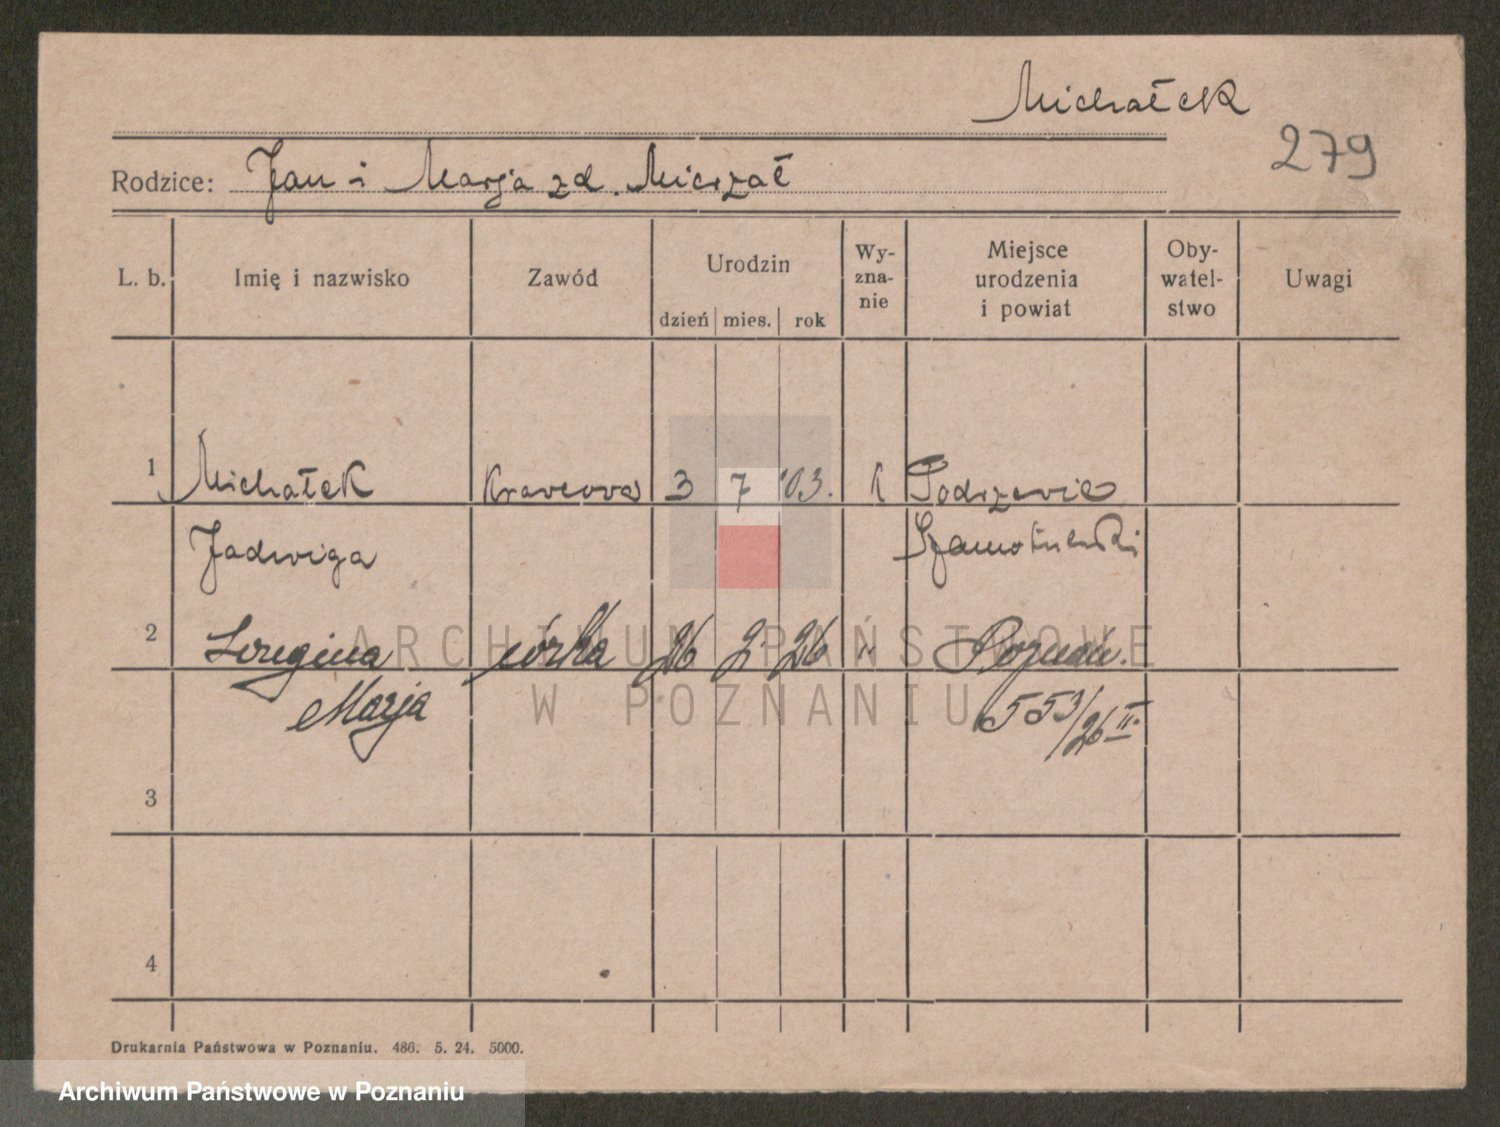 Michałek
279
Rodzice: Jan i Marja zd. Mierzał
L. b. Imię i nazwisko Zawód Urodzin dzień mies. rok Wy-zna-nie Miejsce urodzenia i powiat Oby-watel-stwo Uwagi
1 Michałek Krawcowa 3 7 '03. K
Jadwiga Szamotulski
2 córka 26 2 26 " Poznań.
Marja 553/26 II.
3
4
ARCHIWUM PAŃSTWOWE
W POZNANIU
Drukarnia Państwowa w Poznaniu. 486. 5. 24. 5000.
Archiwum Państwowe w Poznaniu